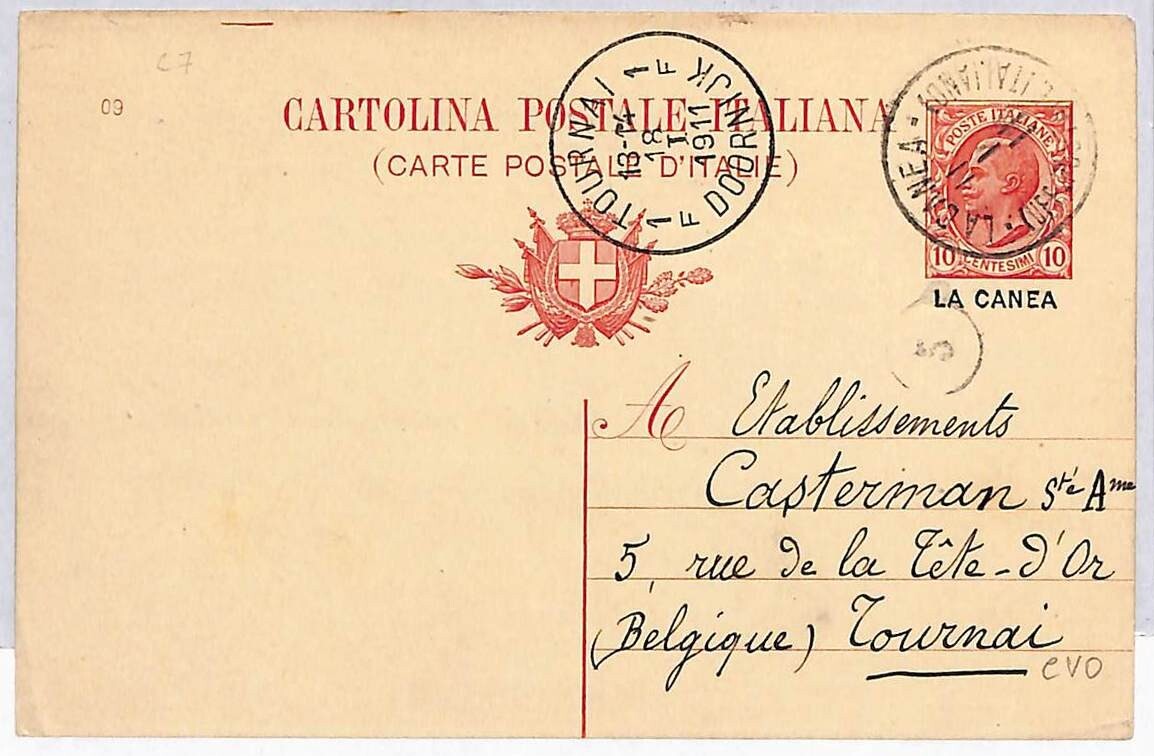 C7
09
CARTOLINA POSTALE ITALIANA
(CARTE POSTALE D'ITALIE)
1 TOURNAI 1
13-14
18
I
1911
F DOORNIJK F
LA CANEA
POSTE ITALIANE
10 CENTESIMI 10
LA CANEA
5
A Etablissements
Casterman Sté Ame
5, rue de la Tête-d'Or
(Belgique) Tournai
evo